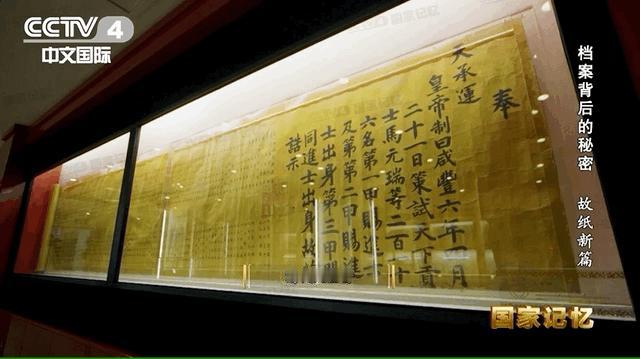 CCTV 4
中文国际
奉
天承運
皇帝制曰咸豐六年四月
二十一日策試天下貢
士馬元瑞等二百一十
六名第一甲賜進士
及第第二甲賜進
士出身第三甲
同進士出身故
誥示
档案背后的秘密 故纸新篇
国家记忆